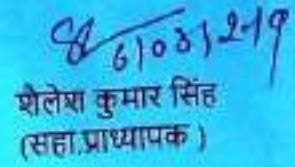 6/03/219
शैलेश कुमार सिंह
(सहा.प्राध्यापक)